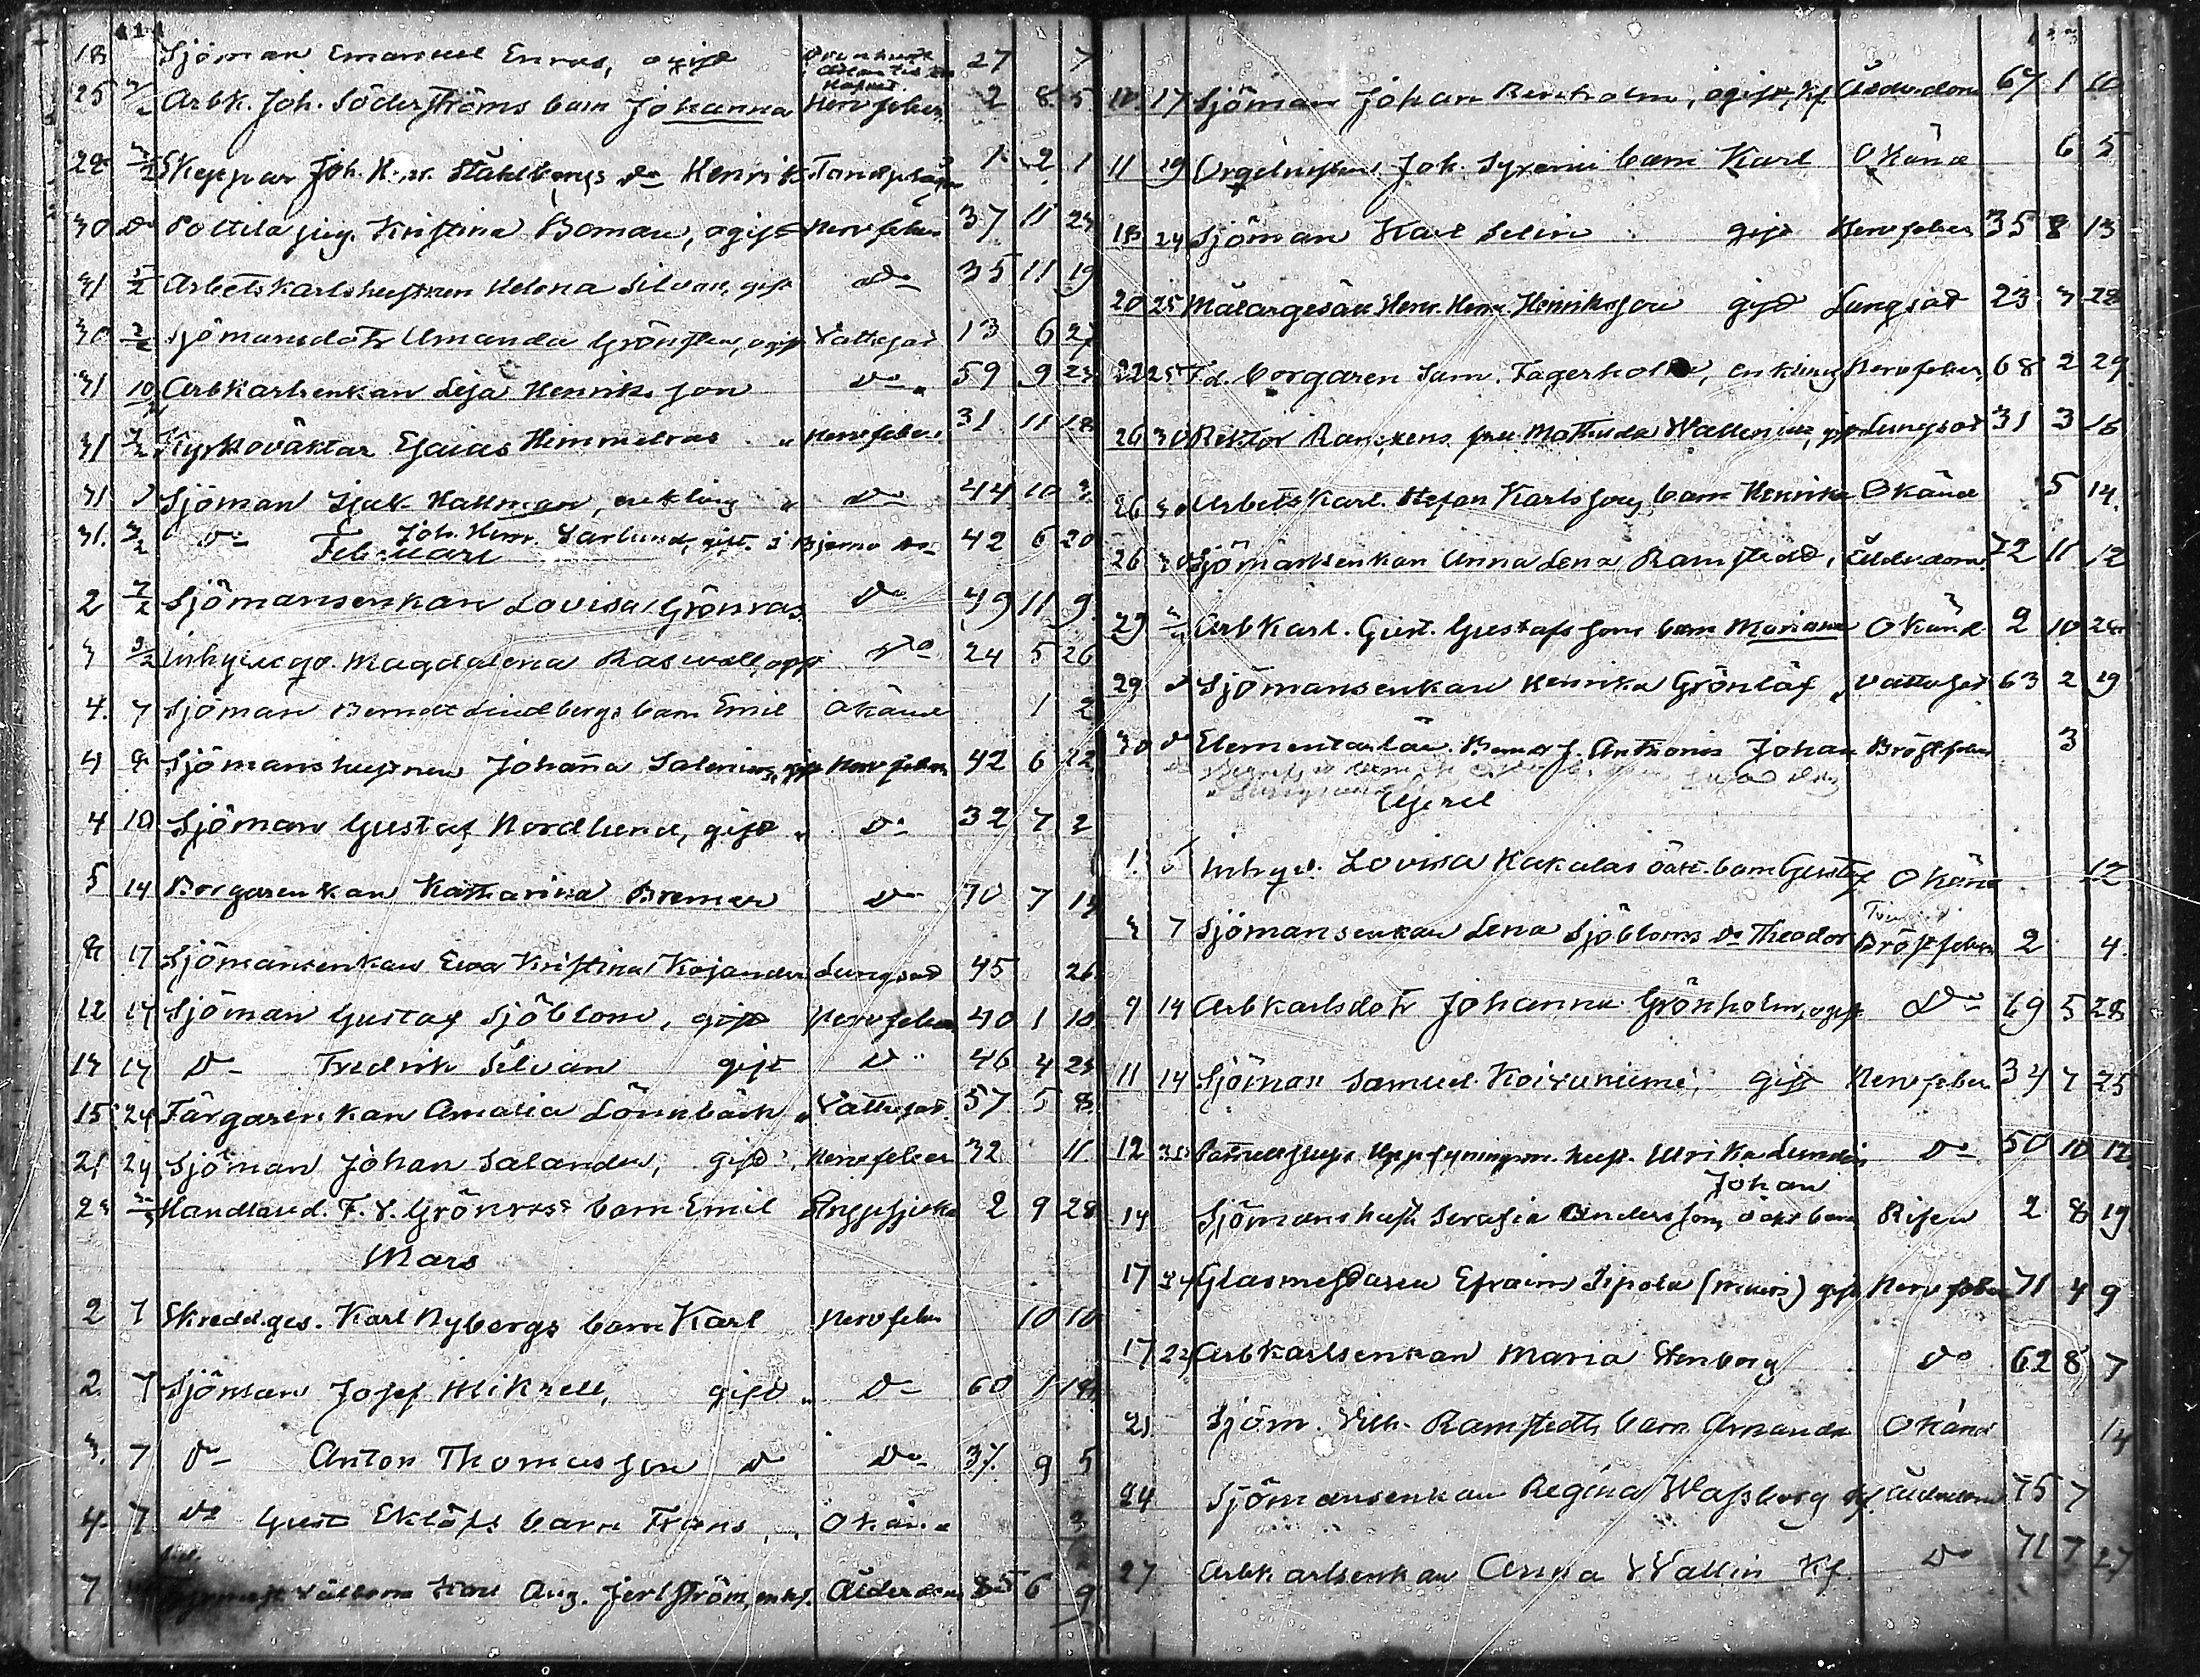 414
18 Sjöman Emanuel Enros, ogift Drunknat i Atlantiska Hafvet 27 7
25 2/2 Arbk. Joh. Söderströms barn Johanna Nervfeber 2 8 5
29 Skeppar Joh. Henr. Ståhlbergs Do Henrik Tandplågor 1 2 1
30 Do Kristina Boman, ogift Nervfeber 37 11 23
31 5/2 Arbetskarlshustrun Helena Silvan, gift Do 35 11 19
30 2/2 Sjömansdotr Amanda Grönsten, ogift Vattusot 13 6 27
31 10/2 Arbkarlsenkan Lisa Henriksson Do 59 9 23
31 7/2 Kyrkoväktar Esaias Himmelros " Nervfeber 31 11 18
31 Sjöman Isak Hallman, enkling " Do 44 10 3
31. 3/2 Do Joh. Henr. Sarlund, gift i Bjerno Do 42 6 20
Februari
2 7/2 Sjömansenkan Lovisa Grönros Do 49 11 9
3 9/2 Magdalena Roswall, ogift Do 24 5 26
4. 7 Sjöman Berndt Lindbergs barn Emil Okänd 1 2
4 9 Sjömanshustrun Johanna Salenius, gift Nervfeber 42 6 22
4 10 Sjöman Gustaf Nordlund, gift " Do 32 7 2
5 14 Borgarenkan Katharina Bremer Do 70 7 14
8 17 Sjömansenkan Eva Kristina Kojander Lungsot 45 26
12 14 Sjöman Gustaf Sjöblom, gift Nervfeber 40 1 10
14 14 Do Fredrik Silvan gift Do 46 4 23
15 24 Färgarenkan Amalia Lönnbäck " Vattusot 57 5 8
21 24 Sjöman Johan Salander, gift Nervfeber 32 11
23 Handland. F. V. Grönroos barn Emil 2 9 28
Mars
2 7 Skredd.ges. Karl Nybergs barn Karl Nervfeber 10 10
2. 7 Sjöman Josef Mikrell, gift " Do 60 1 18
3. 7 Do Anton Thomasson Do Do 37 9 5
4. 7 Do Gust Eklöfs barn Frans Okänd 3
7 Karl Aug. Jerlström, enkl. Ålderdom 85 6 9
10 17 Sjöman Johan Bergholm, ogift, Kf Ålderdom 67 1 10
11 19 Orgelnisten Joh. Syrenii barn Karl Okänd 6 5
18 24 Sjöman Karl Selin gift Nervfeber 35 8 13
20 25 Målargesäll Henr. Herm. Henriksson gift Lungsot 23 3 28
22 25 F.d. borgaren Sam. Fagerholm, enkling Nervfeber 68 2 29
26 30 Rektor Ranckens fru Mathilda Wallenius, gift Lungsot 31 3 16
26 30 Arbets Karl. Stefan Karlssons barn Henrika Okänd 5 14
26 30 Sjömansenkan Anna Lena Ramstedt, Ålderdom 72 11 12
29 Arbkarl. Gust. Gustafssons barn Mariana Okänd 2 10 24
29 Do Sjömansenkan Henrika Grönlöf " Vattusot 63 2 19
30 Do Elementarlär. Bernd. J. Anthonis Johan Bröstfeber 3
April
1. 5 Inhys. Lovisa Kakalas oäkt. barn Gustaf Okänd 12
3 7 Sjömansenkan Lena Sjöbloms Do Theodor Bröstfeber 2 4
9 14 Arbkarlsdotr Johanna Grönholm, ogift Do 69 5 28
11 14 Sjöman Samuel Koivuniemi, gift Nervfeber 34 7 25
12 Uppsyningsm. hust. Ulrika Lundin Do 50 10 12
14 Sjömanshust Serafia Anderssons oäkt barn Johan Risen 2 8 19
17 24 Glasmästaren Efraim Sipola gift Nervfeber 71 4 9
17 22 Arbkarlsenkan Maria Stenberg Do 62 8 7
21 Sjöm. Vilh. Ramstedts barn Amanda Okänd 14
24 Sjömansenkan Regina Wassberg Kf. Ålderdom 75 7
27 Arbkarlsenkan Anna Wallin Kf. Do 71 7 27